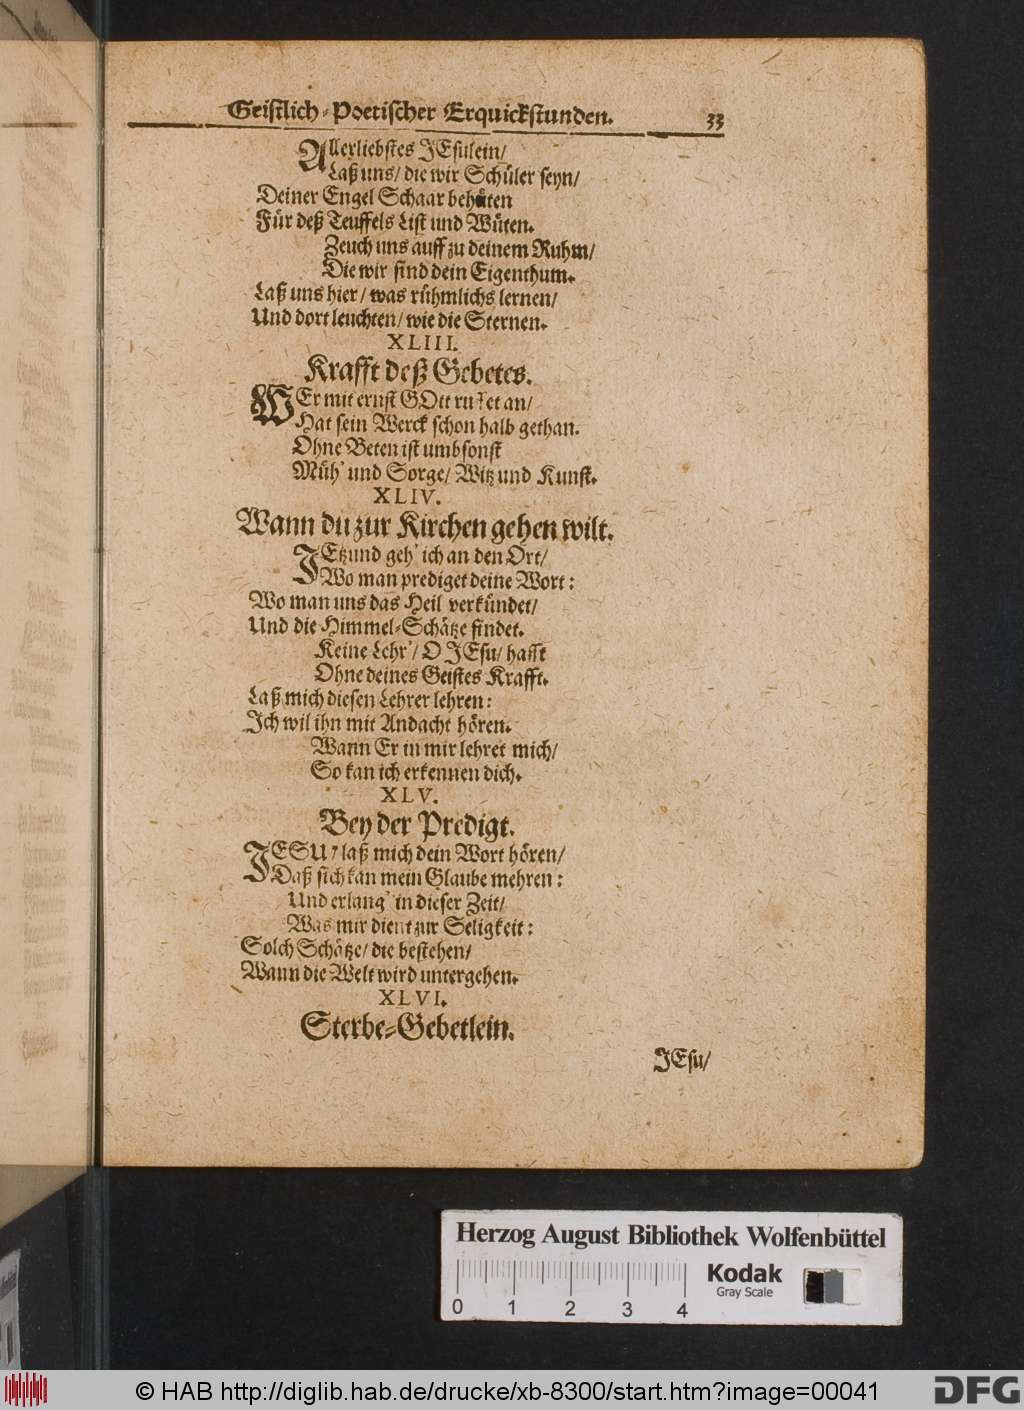 Geistlich-Poetischer Erquickstunden. 33
ALlerliebstes JEsulein/
Laß uns/ die wir Schüler seyn/
Deiner Engel Schaar behüten
Für deß Teuffels List und Wüten.
Zeuch uns auff zu deinem Ruhm/
Die wir sind dein Eigenthum.
Laß uns hier/ was rühmlichs lernen/
Und dort leuchten/ wie die Sternen.
XLIII.
Krafft deß Gebetes.
WEr mit ernst GOtt ruffet an/
Hat sein Werck schon halb gethan.
Ohne Beten ist umbsonst
Müh' und Sorge/ Witz und Kunst.
XLIV.
Wann du zur Kirchen gehen wilt.
JEtzund geh' ich an den Ort/
Wo man prediget deine Wort:
Wo man uns das Heil verkündet/
Und die Himmel-Schätze findet.
Keine Lehr'/ O JEsu/ hafft
Ohne deines Geistes Krafft.
Laß mich diesen Lehrer lehren:
Ich wil ihn mit Andacht hören.
Wann Er in mir lehret mich/
So kan ich erkennen dich.
XLV.
Bey der Predigt.
JESU/ laß mich dein Wort hören/
Daß sich kan mein Glaube mehren:
Und erlang' in dieser Zeit/
Was mir dient zur Seligkeit:
Solch Schätze/ die bestehen/
Wann die Welt wird untergehen.
XLVI.
Sterbe-Gebetlein.
JEsu/
Herzog August Bibliothek Wolfenbüttel
0 1 2 3 4
Kodak
Gray Scale
© HAB http://diglib.hab.de/drucke/xb-8300/start.htm?image=00041
DFG